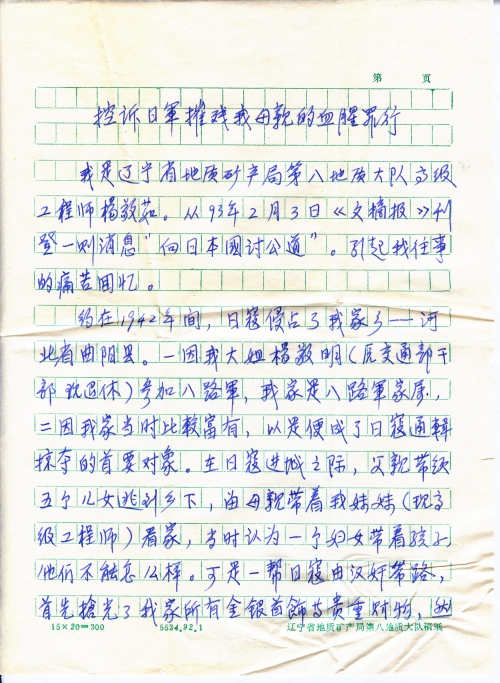 第 页
控诉日軍摧残我母親的血腥罪行
我是辽宁省地质矿产局第八地质大队高级
工程师楊敬茹。从93年2月3日《文摘报》刊
登一则消息"向日本國討公道"。引起我往事
的痛苦回忆。
约在1942年间，日寇侵占了我家乡——河
北省曲阳县。一因我大姐楊敬明（原交通部干
部现退休）参加八路軍，我家是八路軍家属，
二因我家当时比較富有，以是便成了日寇通輯
掠夺的首要对象。在日寇进城之际，父親带领
五个儿女逃到乡下，由母親带着我妹妹（现高
级工程师）看家，当时认为一个妇女带着孩子
他们不能怎么样。可是一帮日寇由汉奸带路，
首先搶光了我家所有金银首飾与贵重财物，然
15×20=300 5534.92.1 辽宁省地质矿产局第八地质大队稿纸